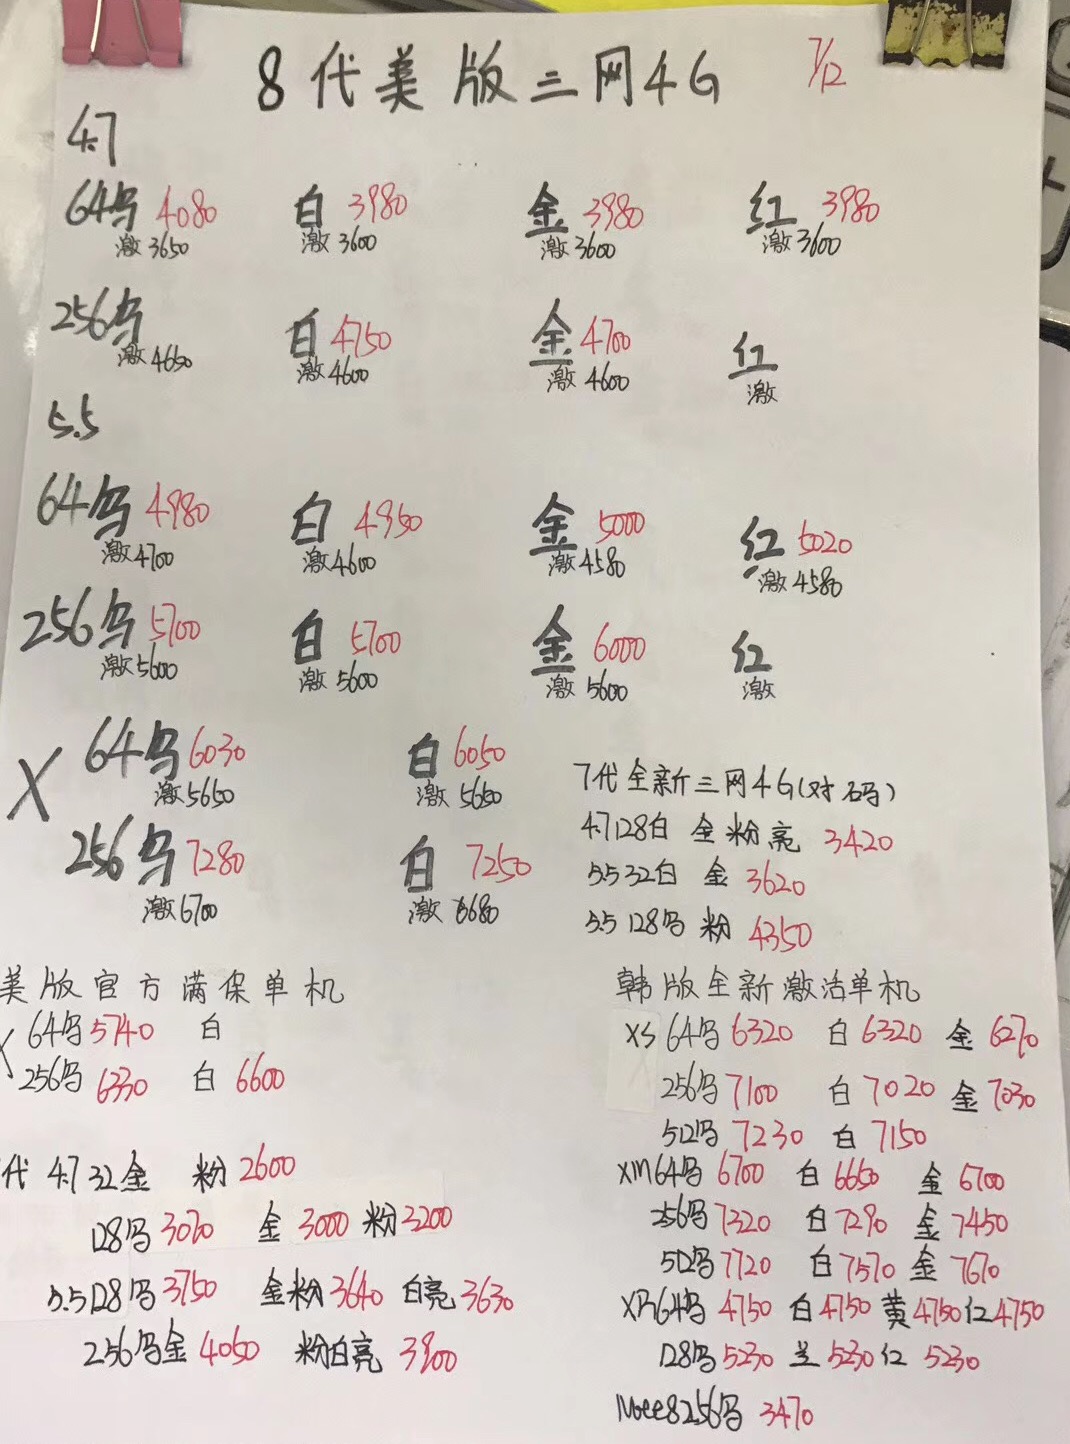 8代美版三网4G 7/12
4.7
64乌 4080 白 3980 金 3980 红 3980
激3650 激3600 激3600 激3600
256乌 白 4750 金 4700 红
激4650 激4600 激4600 激
5.5
64乌 4980 白 4950 金 5000 红 5020
激4700 激4600 激4580 激4580
256乌 5700 白 5700 金 6000 红
激5600 激5600 激5600 激
X 64乌 6030 白 6050
激5650 激5650
256乌 7280 白 7250
激6700 激6680
7代全新三网4G(对码)
4.7128白 金粉亮 3420
5.532白 金 3620
5.5128乌 粉 4350
美版官方满保单机
X 64乌 5740 白
256乌 6330 白 6600
代 4.732金 粉2600
128乌3070 金3000 粉3200
5.5128乌3750 金粉3640 白亮3630
256乌金4050 粉白亮 3900
韩版全新激活单机
XS 64乌 6320 白6320 金 6270
256乌 7100 白 7020 金 7030
512乌 7230 白 7150
XM64乌 6700 白 6650 金 6700
256乌7320 白7290 金 7450
512乌 7720 白7570 金 7670
XR64乌 4750 白4750 黄4750红4750
128乌5230 兰 5230红 5230
8256乌 3470